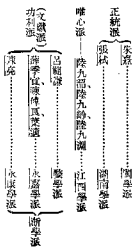 正統派
朱熹 閩學派
張栻 湖南學派
唯心派 陸九韶陸九齡陸九淵 江西學派
功利派
(文獻派)
呂祖謙 婺學派
薛季宣陳傅良葉適 永嘉學派
陳亮 永康學派
浙學派